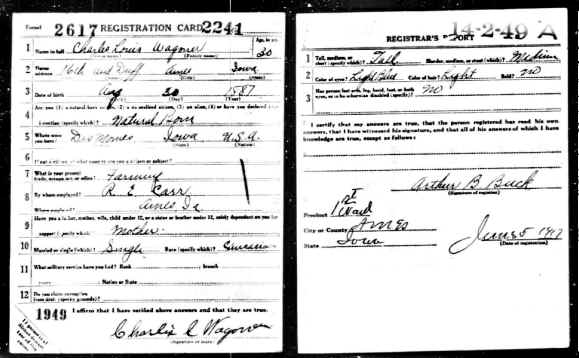 Form 1 2617 REGISTRATION CARD 2241
Age, in yrs.
1 Name in full Charles Louis Wagoner 30
(Given name) (Family name)
2 Home address 16th and Duff Ames Iowa
3 Date of birth Aug 30 1887
(Month) (Day) (Year)
4 Are you (1) a natural born citizen, (2) a naturalized citizen, (3) an alien, (4) or have you declared your
intention (specify which)? Natural Born
5 Where were you born? Des Moines Iowa U.S.A.
(Town) (State) (Nation)
6 If not a citizen, of what country are you a citizen or subject?
7 What is your present trade, occupation, or office? Farming
8 By whom employed? R. E. Carr
Where employed? Ames Ia
9 Have you a father, mother, wife, child under 12, or a sister or brother under 12, solely dependent on you for
support (specify which)? Mother
10 Married or single (which)? Single Race (specify which)?
11 What military service have you had? Rank branch
years Nation or State
12 Do you claim exemption from draft (specify grounds)?
1949 I affirm that I have verified above answers and that they are true.
Charlie L Wagoner
(Signature or mark)
14-2-49 A
REGISTRAR'S REPORT
1 Tall, medium, or short (specify which)? Tall Slender, medium, or stout (which)? Medium
2 Color of eyes? Light Blue Color of hair? Light Bald? No
3 Has person lost arm, leg, hand, foot, or both eyes, or is he otherwise disabled (specify)? No
I certify that my answers are true, that the person registered has read his own
answers, that I have witnessed his signature, and that all of his answers of which I have
knowledge are true, except as follows:
Arthur B Buck
(Signature of registrar)
Precinct 1st Ward
City or County Ames
State Iowa
June 5 1917
(Date of registration)